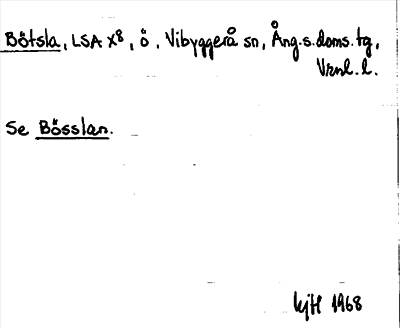 Bötsla, LSA X8, ö, Vibyggerå sn, Ång.s.doms.tg,
Vrnl. l.
Se Bösslan.
1968